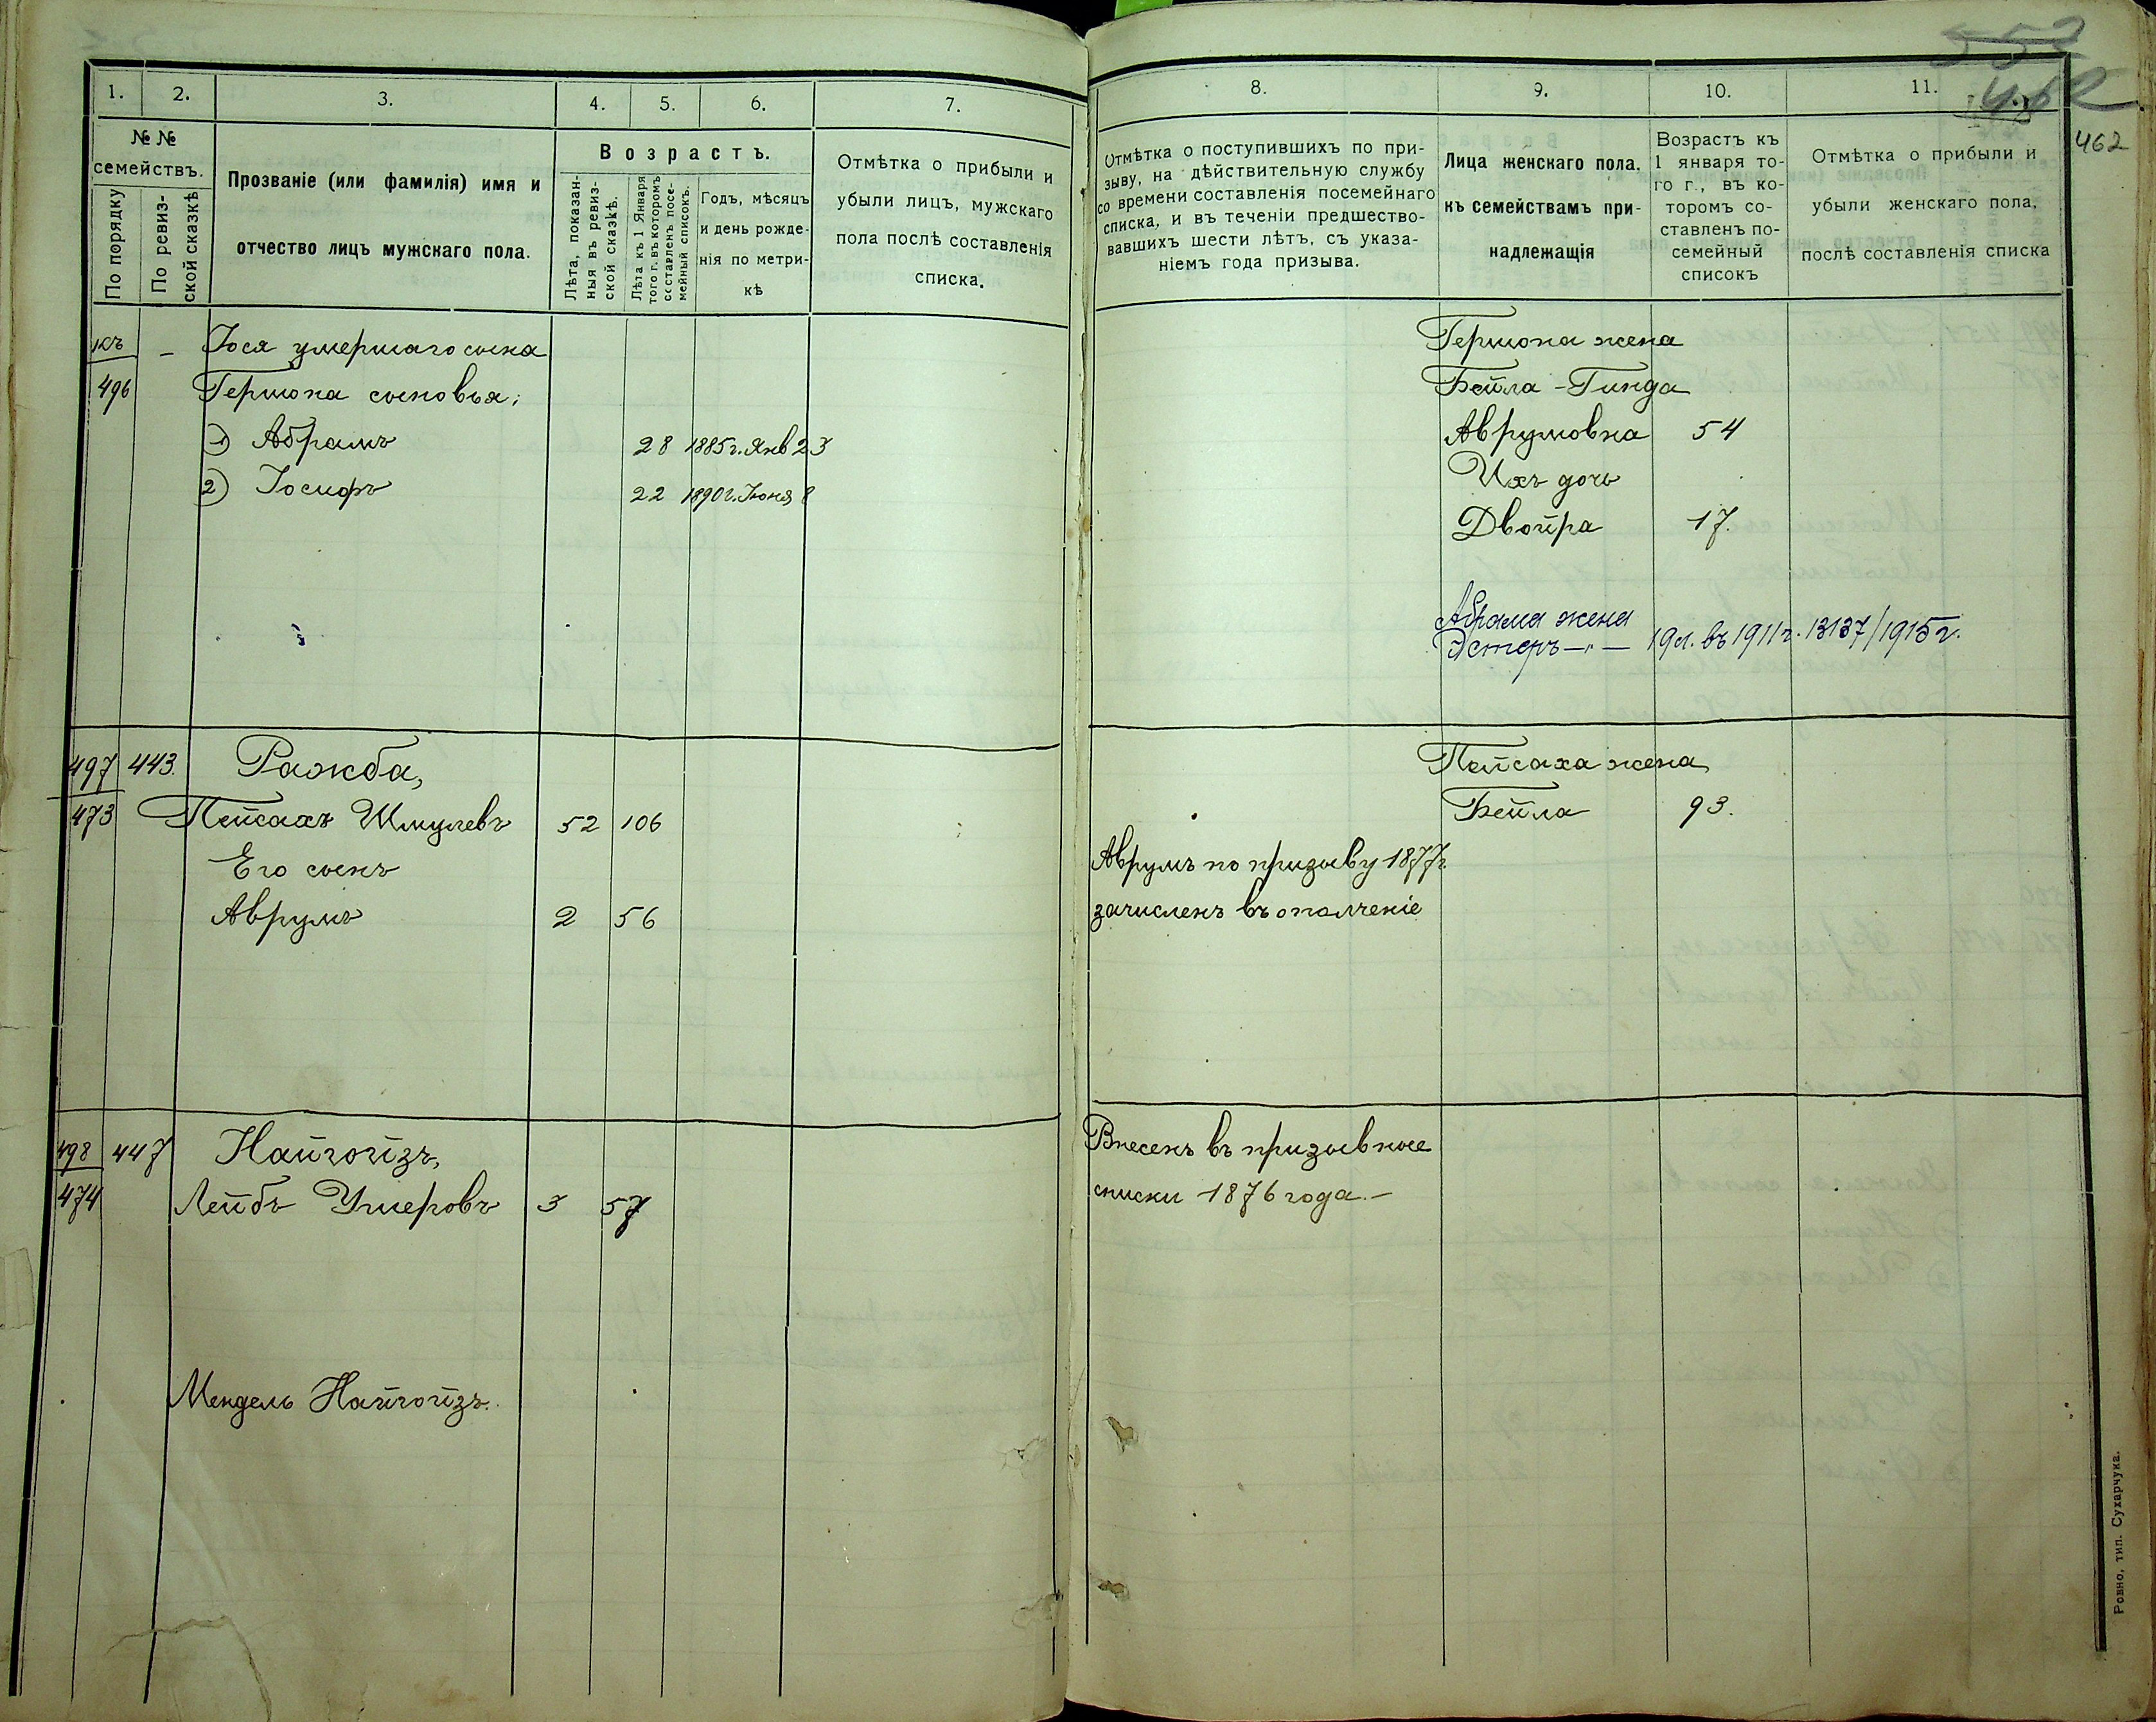 1.
2.
3.
4.
5.
6.
7.
№ №
семействъ.
По порядку
По ревиз-
ской сказкѣ
Прозваніе (или фамилія) имя и
отчество лицъ мужскаго пола.
Возрастъ.
Лѣта, показан-
ныя въ ревиз-
ской сказкѣ.
Лѣта къ 1 Января
того г. въ которомъ
составленъ посе-
мейный списокъ.
Годъ, мѣсяцъ
и день рожде-
нія по метри-
кѣ
Отмѣтка о прибыли и
убыли лицъ, мужскаго
пола послѣ составленія
списка.
къ — Іося умершаго сына
496 Гершона сыновья:
1) Абрамъ 28 1885г. Янв 23
2) Іосифъ 22 1890г. Іюня 8
497 443. Ражба,
473 Пейсахъ Шмулевъ 52 106
Его сынъ
Аврумъ 2 56
498 447 Найгойзъ,
474 Лейбъ Ушеровъ 3 57
Мендель Найгойзъ.
8.
9.
10.
11.
552
462
462
Отмѣтка о поступившихъ по при-
зыву, на дѣйствительную службу
со времени составленія посемейнаго
списка, и въ теченіи предшество-
вавшихъ шести лѣтъ, съ указа-
ніемъ года призыва.
Лица женскаго пола.
къ семействамъ при-
надлежащія
Возрастъ къ
1 января то-
го г., въ ко-
торомъ со-
ставленъ по-
семейный
списокъ
Отмѣтка о прибыли и
убыли женскаго пола,
послѣ составленія списка
Гершона жена
Бейла-Гинда
Аврумовна 54
Ихъ дочь
Двойра 17.
Абрама жена
Эстеръ —"— 19 л. въ 1911 г. 13137/1915 г.
Пейсаха жена
Бейла 93.
Аврумъ по призыву 1877г.
зачисленъ въ ополченіе
Внесенъ въ призывные
списки 1876 года.—
Ровно, тип. Сухарчука.